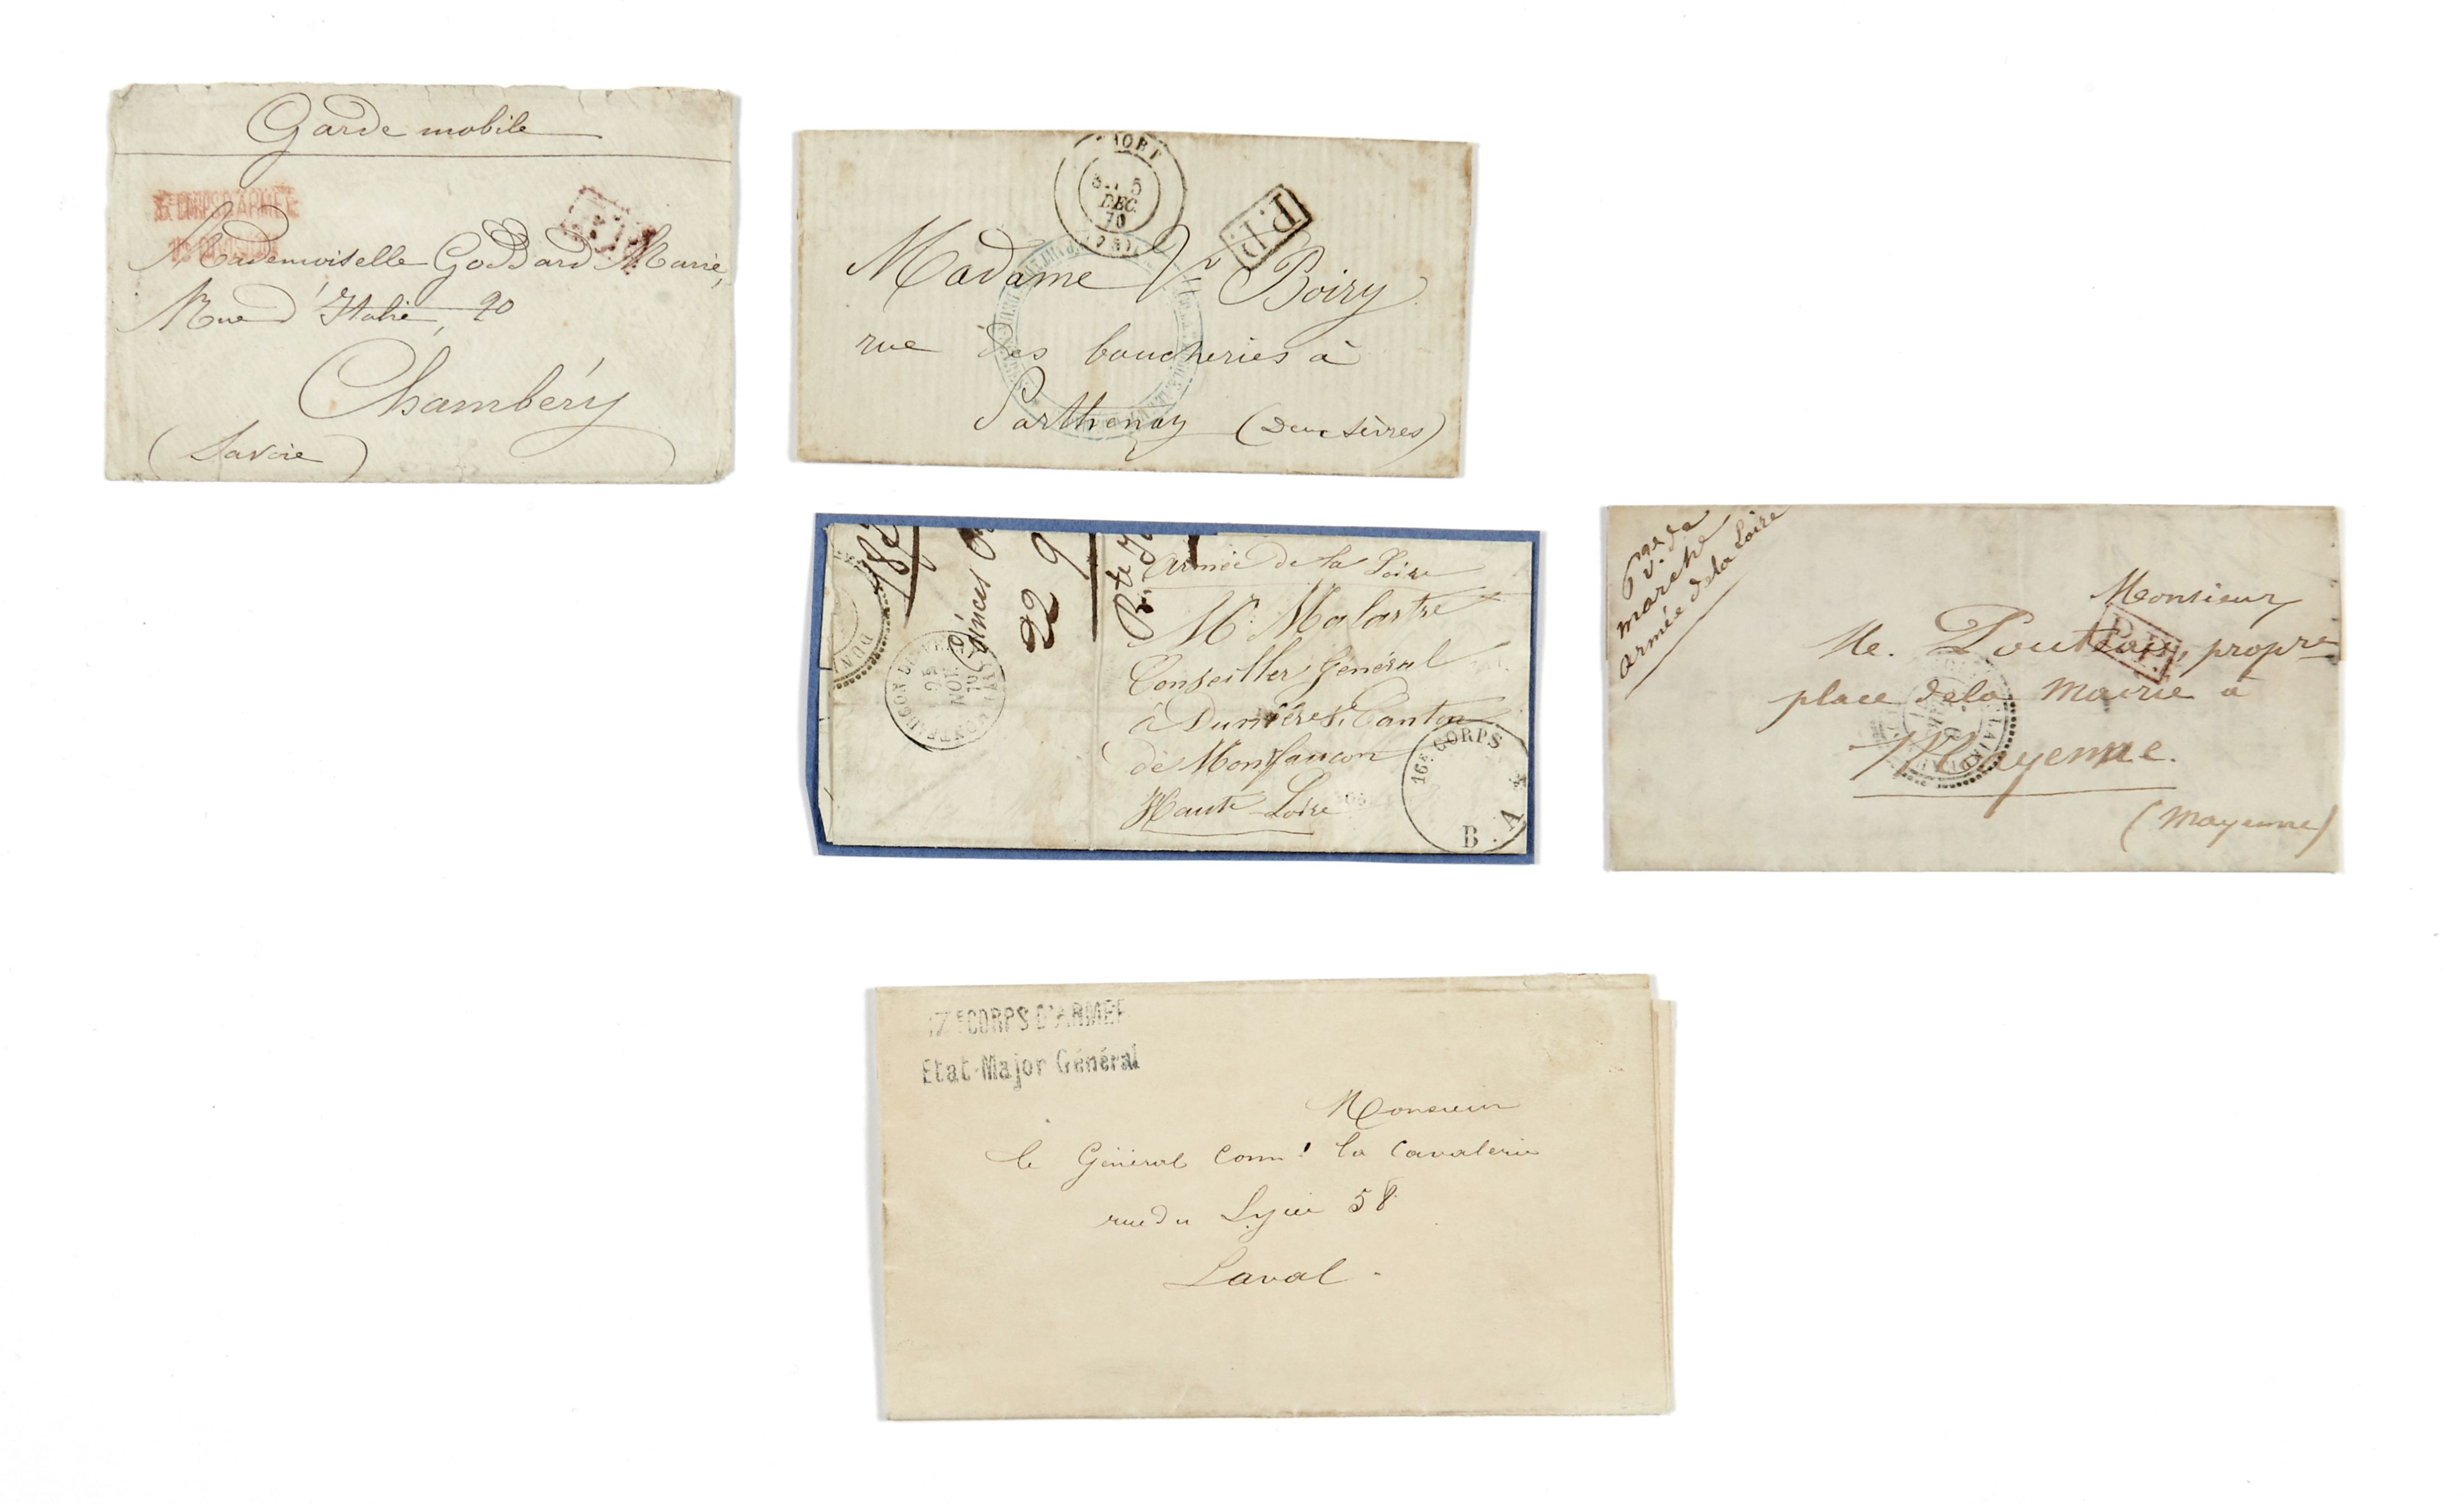 Garde mobile
CORPS D'ARMÉE
DIVISION
Mademoiselle Goddard Marie,
Rue d'Italie, 90
Chambéry
(Savoie)
5
DEC.
70
P.P.
Madame Vve Boiry
rue des boucheries à
Parthenay (Deux Sèvres)
22 9
DUN
NOV.
70
Armée de la Loire
Mr. Malartre
Conseiller Général
à Dunières, Canton
de Monfaucon
Haute Loire
16E CORPS
B A
marche
armée de la Loire
Monsieur
P.P.
Me. Pouteau, propre
place de la Mairie à
Mayenne.
(Mayenne)
17E CORPS D'ARMEE
Etat-Major Général
Monsieur
le Général Commt la Cavalerie
rue du Lycée 58
Laval -